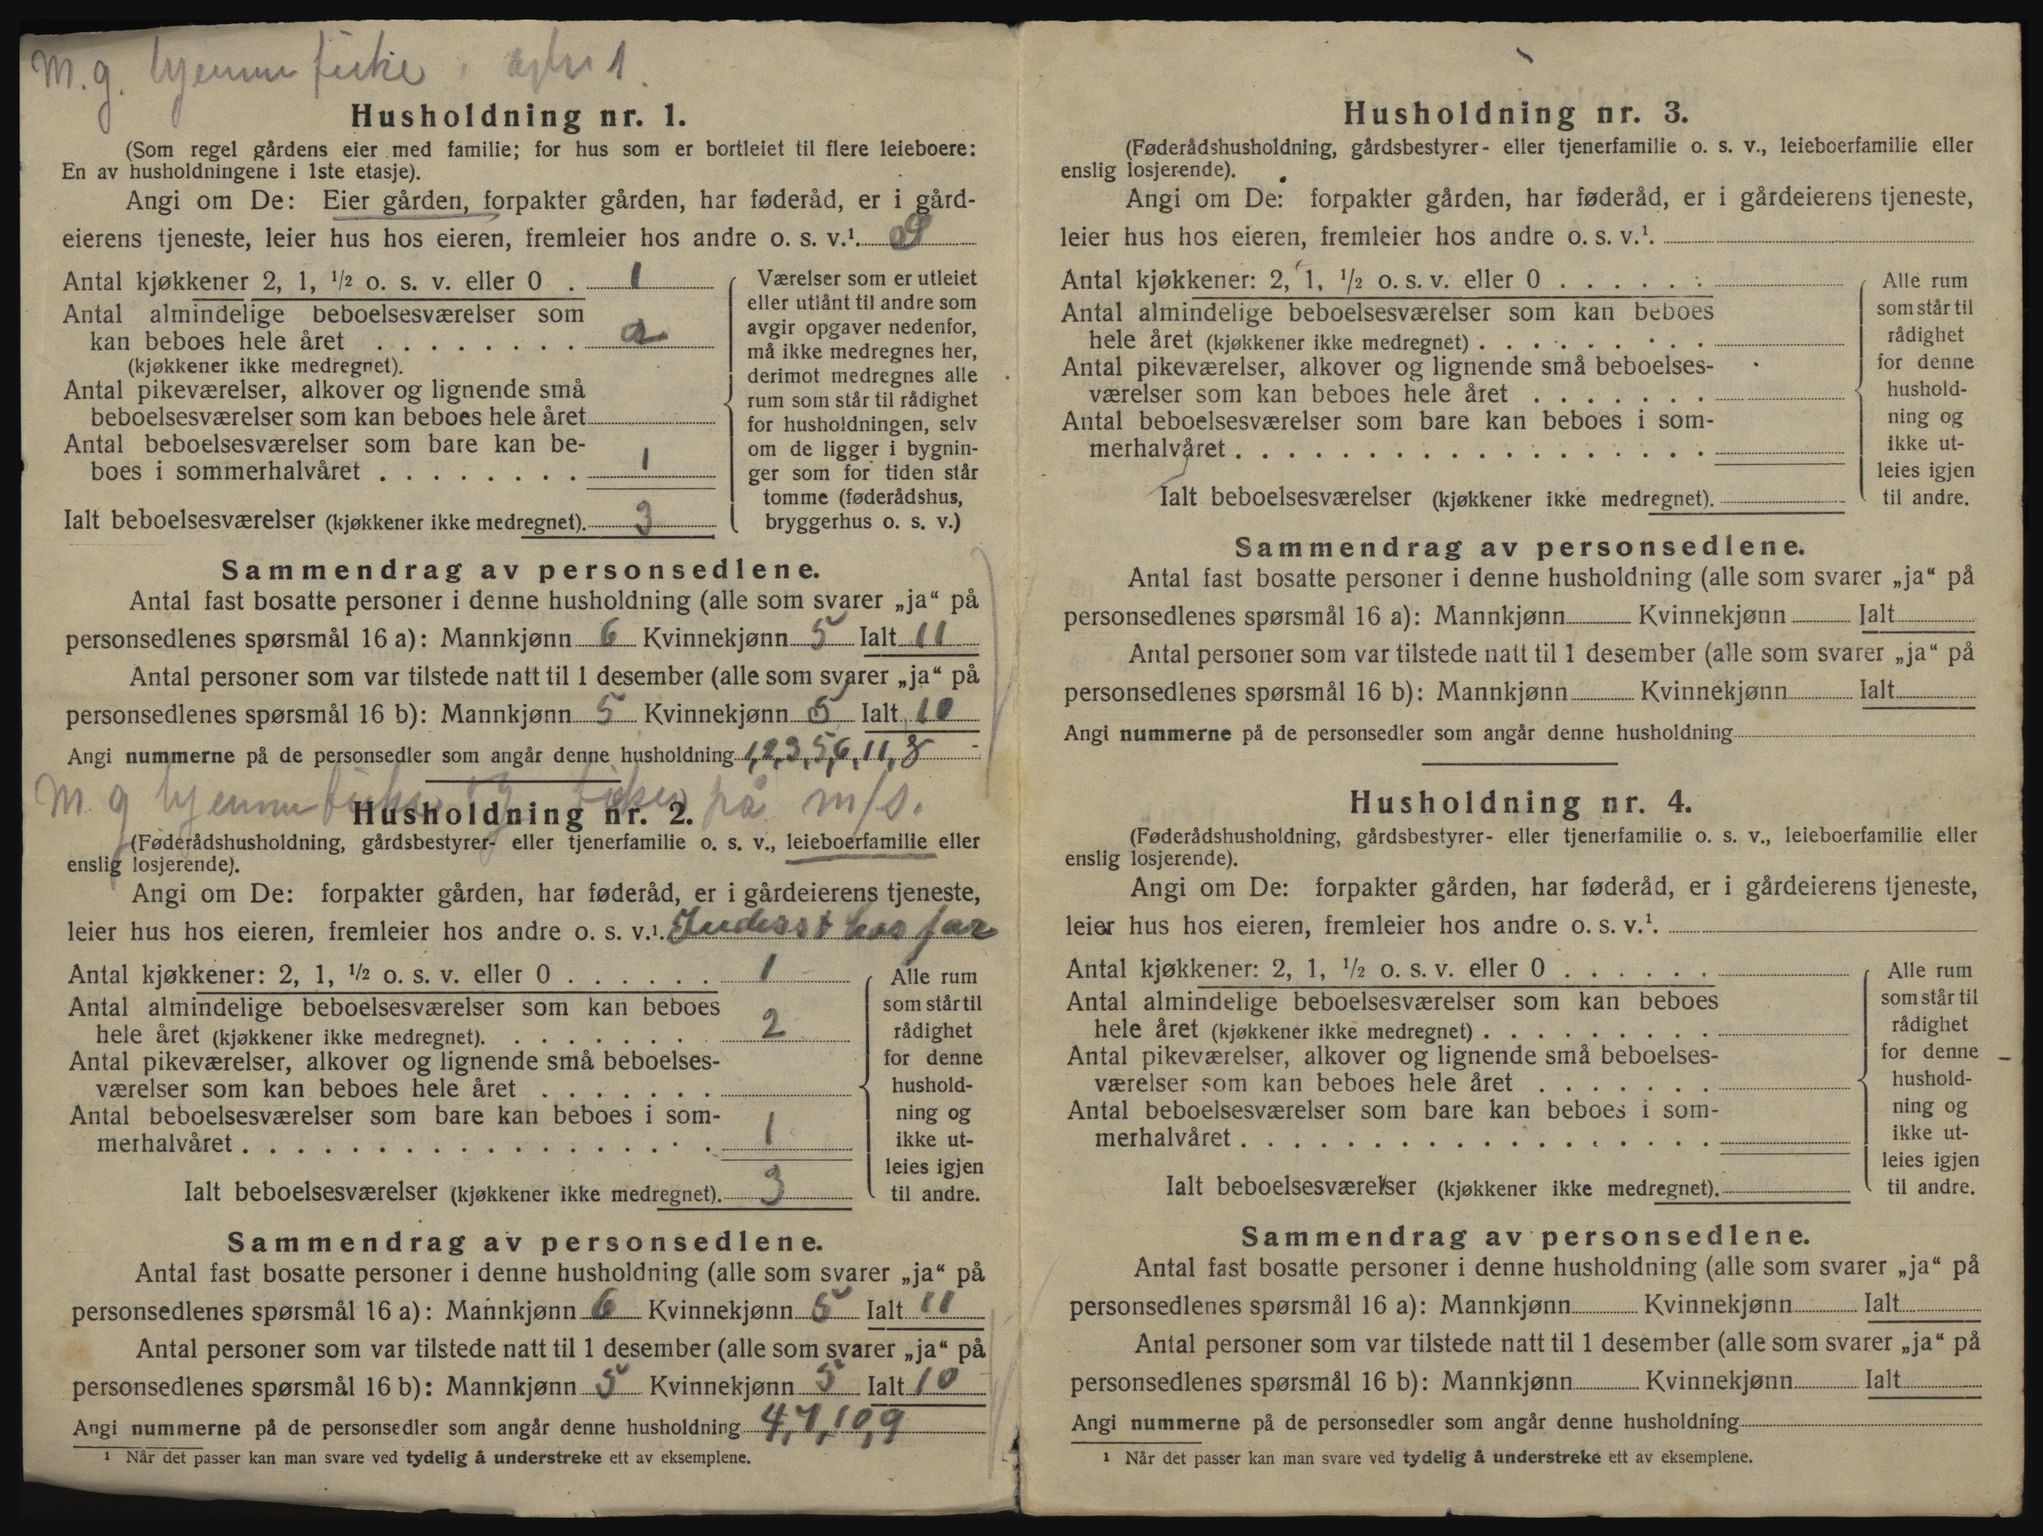 M. g. hjemmefiske
Husholdning nr. 1.
(Som regel gårdens eier med familie; for hus som er bortleiet til flere leieboere:
En av husholdningene i 1ste etasje).
Angi om De: Eier gården, forpakter gården, har føderåd, er i gård-
eierens tjeneste, leier hus hos eieren, fremleier hos andre o. s. v.¹.
Antal kjøkkener 2, 1, ½ o. s. v. eller 0 . 1
Antal almindelige beboelsesværelser som
kan beboes hele året . . . . . . . . 2
(kjøkkener ikke medregnet).
Antal pikeværelser, alkover og lignende små
beboelsesværelser som kan beboes hele året
Antal beboelsesværelser som bare kan be-
boes i sommerhalvåret . . . . . . . . 1
Ialt beboelsesværelser (kjøkkener ikke medregnet). 3
Værelser som er utleiet
eller utlånt til andre som
avgir opgaver nedenfor,
må ikke medregnes her,
derimot medregnes alle
rum som står til rådighet
for husholdningen, selv
om de ligger i bygnin-
ger som for tiden står
tomme (føderådshus,
bryggerhus o. s. v.)
Sammendrag av personsedlene.
Antal fast bosatte personer i denne husholdning (alle som svarer „ja“ på
personsedlenes spørsmål 16 a): Mannkjønn 6 Kvinnekjønn 5 Ialt 11
Antal personer som var tilstede natt til 1 desember (alle som svarer „ja“ på
personsedlenes spørsmål 16 b): Mannkjønn 5 Kvinnekjønn 5 Ialt 10
Angi nummerne på de personsedler som angår denne husholdning 1,2,3,5,6,11,8
M. g. hjemmefiske og fisker på m/s.
Husholdning nr. 2.
(Føderådshusholdning, gårdsbestyrer- eller tjenerfamilie o. s. v., leieboerfamilie eller
enslig losjerende).
Angi om De: forpakter gården, har føderåd, er i gårdeierens tjeneste,
leier hus hos eieren, fremleier hos andre o. s. v.¹. Inderst hos far
Antal kjøkkener: 2, 1, ½ o. s. v. eller 0 . . . . . . 1
Antal almindelige beboelsesværelser som kan beboes
hele året (kjøkkener ikke medregnet). . . . . . . . . 2
Antal pikeværelser, alkover og lignende små beboelses-
værelser som kan beboes hele året . . . . . . .
Antal beboelsesværelser som bare kan beboes i som-
merhalvåret . . . . . . . . . . . . . . . . . . 1
Ialt beboelsesværelser (kjøkkener ikke medregnet). 3
Alle rum
som står til
rådighet
for denne
hushold-
ning og
ikke ut-
leies igjen
til andre.
Sammendrag av personsedlene.
Antal fast bosatte personer i denne husholdning (alle som svarer „ja“ på
personsedlenes spørsmål 16 a): Mannkjønn 6 Kvinnekjønn 5 Ialt 11
Antal personer som var tilstede natt til 1 desember (alle som svarer „ja“ på
personsedlenes spørsmål 16 b): Mannkjønn 5 Kvinnekjønn 5 Ialt 10
Angi nummerne på de personsedler som angår denne husholdning 4,7,10,9
¹ Når det passer kan man svare ved tydelig å understreke ett av eksemplene.
Husholdning nr. 3.
(Føderådshusholdning, gårdsbestyrer- eller tjenerfamilie o. s. v., leieboerfamilie eller
enslig losjerende).
Angi om De: forpakter gården, har føderåd, er i gårdeierens tjeneste,
leier hus hos eieren, fremleier hos andre o. s. v.¹.
Antal kjøkkener: 2, 1, ½ o. s. v. eller 0 . . . . . .
Antal almindelige beboelsesværelser som kan beboes
hele året (kjøkkener ikke medregnet) . . . . . . . . .
Antal pikeværelser, alkover og lignende små beboelses-
værelser som kan beboes hele året . . . . . . .
Antal beboelsesværelser som bare kan beboes i som-
merhalvåret . . . . . . . . . . . . . . . . . .
Ialt beboelsesværelser (kjøkkener ikke medregnet).
Alle rum
som står til
rådighet
for denne
hushold-
ning og
ikke ut-
leies igjen
til andre.
Sammendrag av personsedlene.
Antal fast bosatte personer i denne husholdning (alle som svarer „ja“ på
personsedlenes spørsmål 16 a): Mannkjønn Kvinnekjønn Ialt
Antal personer som var tilstede natt til 1 desember (alle som svarer „ja“ på
personsedlenes spørsmål 16 b): Mannkjønn Kvinnekjønn Ialt
Angi nummerne på de personsedler som angår denne husholdning
Husholdning nr. 4.
(Føderådshusholdning, gårdsbestyrer- eller tjenerfamilie o. s. v., leieboerfamilie eller
enslig losjerende).
Angi om De: forpakter gården, har føderåd, er i gårdeierens tjeneste,
leier hus hos eieren, fremleier hos andre o. s. v.¹.
Antal kjøkkener: 2, 1, ½ o. s. v. eller 0 . . . . . .
Antal almindelige beboelsesværelser som kan beboes
hele året (kjøkkener ikke medregnet) . . . . . . . . .
Antal pikeværelser, alkover og lignende små beboelses-
værelser som kan beboes hele året . . . . . . .
Antal beboelsesværelser som bare kan beboes i som-
merhalvåret . . . . . . . . . . . . . . . . . .
Ialt beboelsesværelser (kjøkkener ikke medregnet).
Alle rum
som står til
rådighet
for denne
hushold-
ning og
ikke ut-
leies igjen
til andre.
Sammendrag av personsedlene.
Antal fast bosatte personer i denne husholdning (alle som svarer „ja“ på
personsedlenes spørsmål 16 a): Mannkjønn Kvinnekjønn Ialt
Antal personer som var tilstede natt til 1 desember (alle som svarer „ja“ på
personsedlenes spørsmål 16 b): Mannkjønn Kvinnekjønn Ialt
Angi nummerne på de personsedler som angår denne husholdning
¹ Når det passer kan man svare ved tydelig å understreke ett av eksemplene.